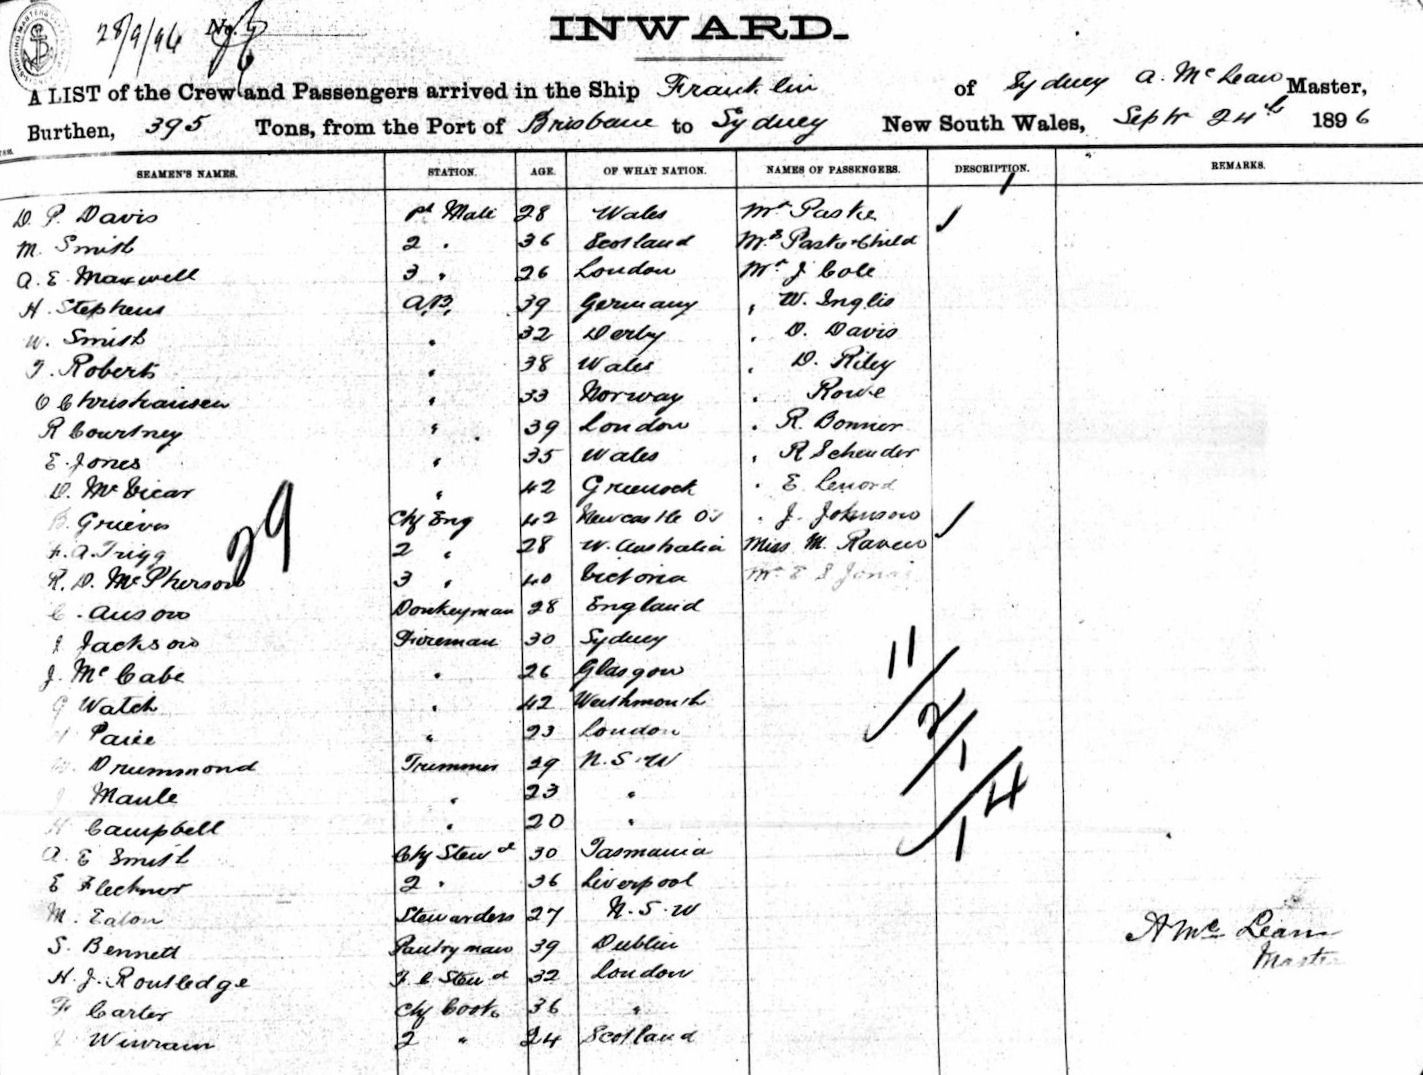 28/9/96 No.
INWARD.
A LIST of the Crew and Passengers arrived in the Ship Franklin of Sydney A. McLean Master,
Burthen, 395 Tons, from the Port of Brisbane to Sydney New South Wales, Septr 24th 1896
SEAMEN'S NAMES. STATION. AGE. OF WHAT NATION. NAMES OF PASSENGERS. DESCRIPTION. REMARKS.
D. P. Davis 1st Mate 28 Wales Mr Paske
M. Smith 2 " 36 Scotland Mrs Paske & Child
A. E. Maxwell 3 " 26 London Mr J Cole
H. Stephens A.B. 39 Germany " W. Inglis
W. Smith " 32 Derby " D. Davis
T. Roberts " 38 Wales " D. Riley
O Christiansen " 33 Norway " Rowe
R Courtney " 39 London " R. Bonner
E. Jones " 35 Wales " R Schender
D. McVicar " 42 Greenock " E. Lenord
B. Grieves Chf Eng 42 Newcastle " J. Johnson
F. A Trigg 2 " 28 W. Australia Miss M. Raven
R. D. McPherson 3 " 40 Victoria Mr E S Jones
29
C. Anson Donkeyman 28 England
J Jackson Fireman 30 Sydney
J. McCabe " 26 Glasgow
11
G Watch " 42
2/1
Paree " 23 London
Drummond Trimmer 29 N.S.W
4/1
J Maule " 23 "
H Campbell " 20 "
A. E Smith Chf Stewd 30 Tasmania
E Flechner 2 " 36 Liverpool
M. Eaton Stewardess 27 N.S.W
A McLean
S. Bennett Pantryman 39 Dublin
Master
H. J. Routledge F. C Stewd 32 London
F Carter Chf Cook 36 "
J Winram 2 " 24 Scotland